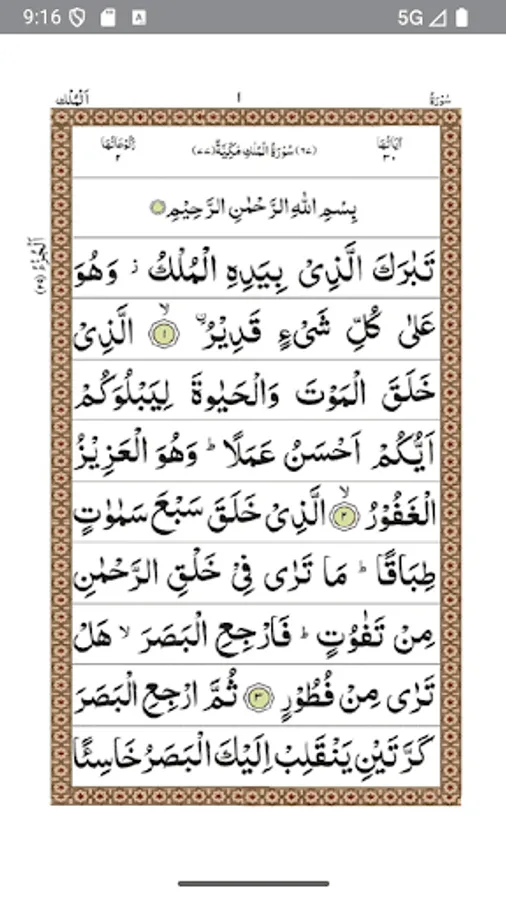 9:16 5G
سُوْرَةُ ١ اَلْمُلْك
اٰيَاتُهَا ٣٠ (٦٧) سُوْرَةُ الْمُلْكِ مَكِّيَّةٌ (٧٧) رُكُوْعَاتُهَا ٢
بِسْمِ اللّٰهِ الرَّحْمٰنِ الرَّحِيْمِ
اَلْجُزْءُ (٢٩)
تَبٰرَكَ الَّذِىْ بِيَدِهِ الْمُلْكُ ز وَهُوَ
عَلٰى كُلِّ شَىْءٍ قَدِيْرُ ۙ ١ الَّذِىْ
خَلَقَ الْمَوْتَ وَالْحَيٰوةَ لِيَبْلُوَكُمْ
اَيُّكُمْ اَحْسَنُ عَمَلًا ؕ وَهُوَ الْعَزِيْزُ
الْغَفُوْرُ ۙ ٢ الَّذِىْ خَلَقَ سَبْعَ سَمٰوٰتٍ
طِبَاقًا ؕ مَا تَرٰى فِىْ خَلْقِ الرَّحْمٰنِ
مِنْ تَفٰوُتٍ ؕ فَارْجِعِ الْبَصَرَ ۙ هَلْ
تَرٰى مِنْ فُطُوْرٍ ٣ ثُمَّ ارْجِعِ الْبَصَرَ
كَرَّتَيْنِ يَنْقَلِبْ اِلَيْكَ الْبَصَرُ خَاسِئًا